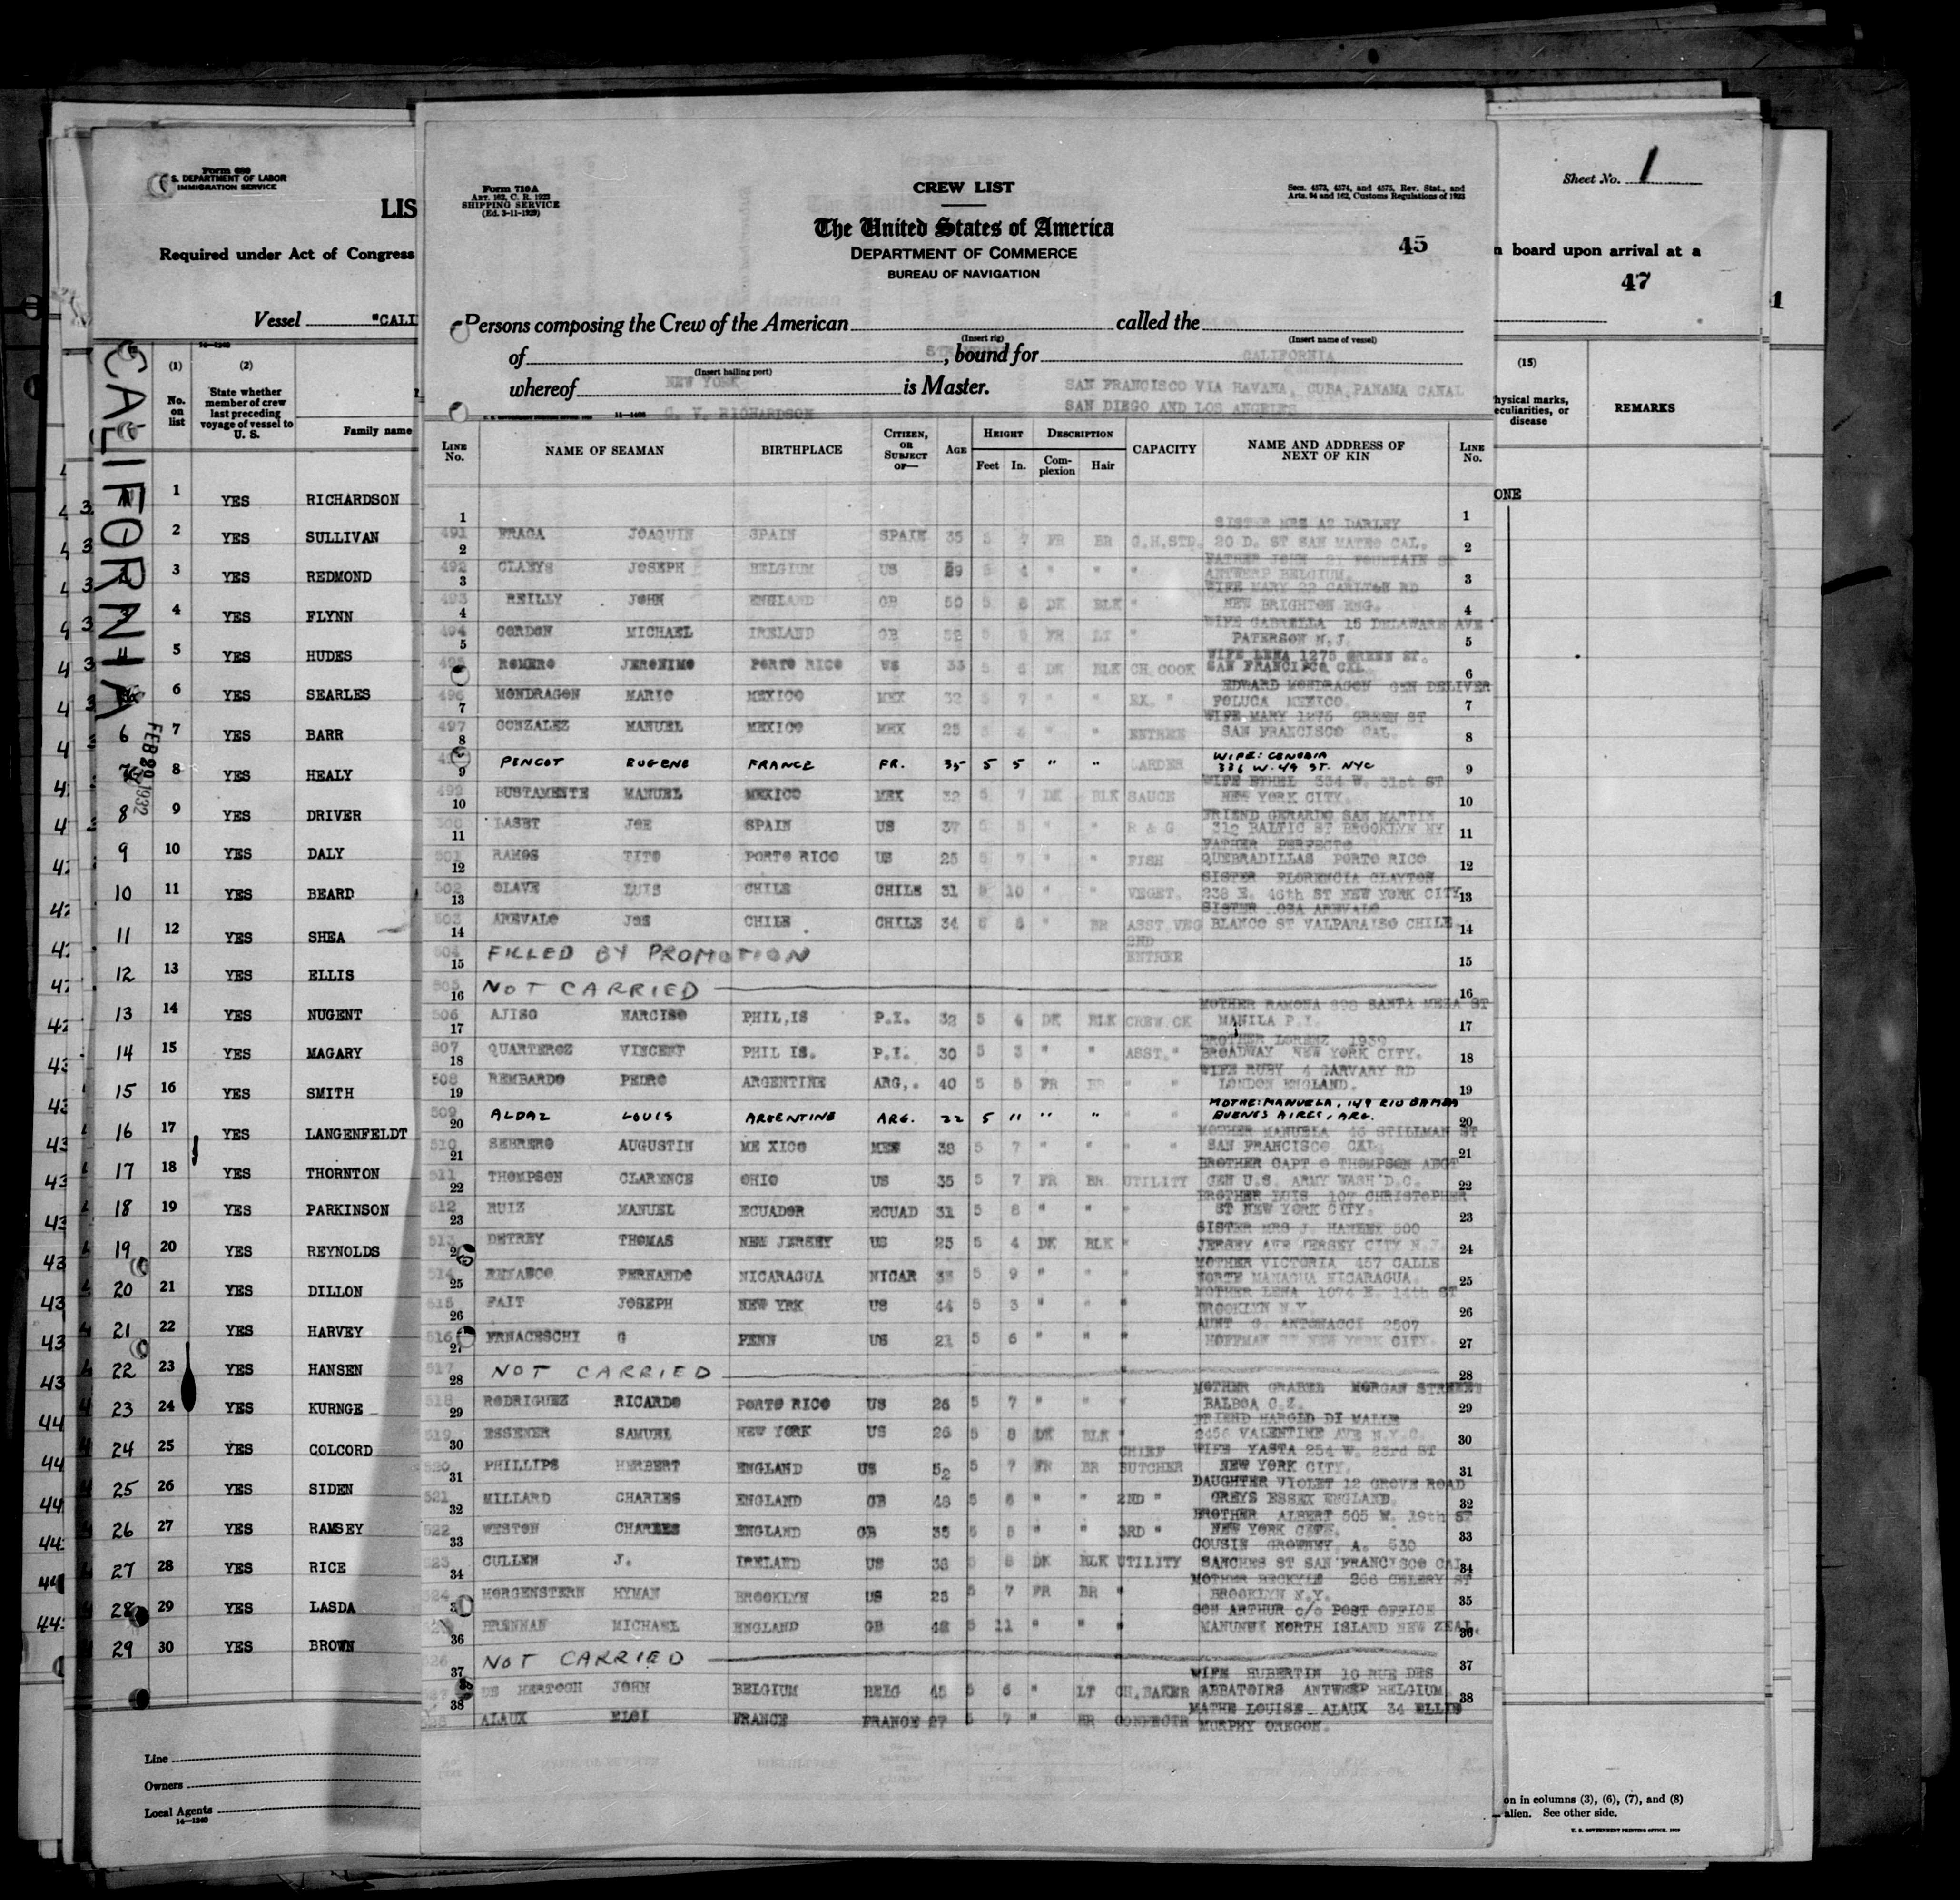 Form 710A
ART. 162, C. R. 1923
SHIPPING SERVICE
(Ed. 3-11-1929)
CREW LIST
Secs. 4573, 4574, and 4575, Rev. Stat., and
Arts. 94 and 162, Customs Regulations of 1923
The United States of America
DEPARTMENT OF COMMERCE
BUREAU OF NAVIGATION
45
Persons composing the Crew of the American called the
(Insert rig) (Insert name of vessel)
of , bound for CALIFORNIA
(Insert hailing port)
whereof NEW YORK is Master. SAN FRANCISCO VIA HAVANA, CUBA, PANAMA CANAL
G. V. RICHARDSON SAN DIEGO AND LOS ANGELES
LINE No. NAME OF SEAMAN BIRTHPLACE CITIZEN, OR SUBJECT OF— AGE HEIGHT Feet In. DESCRIPTION Complexion Hair CAPACITY NAME AND ADDRESS OF NEXT OF KIN LINE No.
491 FRAGA JOAQUIN SPAIN SPAIN 35 5 7 FR BR G.H.STD. SISTER MRS AT DARLEY 20 D. ST SAN MATEO CAL.
492 CLAEYS JOSEPH BELGIUM US 29 5 4 " " " FATHER JOHN 21 FOUNTAIN ST ANTWERP BELGIUM.
493 REILLY JOHN ENGLAND GB 50 5 8 DK BLK " WIFE MARY 22 CARLTON RD NEW BRIGHTON ENG.
494 GORDON MICHAEL IRELAND GB FR LT " WIFE GABRELLA 16 DELAWARE AVE PATERSON N.J.
ROMERO JERONIMO PORTO RICO US 33 5 6 DK BLK CH. COOK WIFE LENA 1275 GREEN ST. SAN FRANCISCO CAL
496 MONDRAGON MARIO MEXICO MEX 32 5 7 " " EX. " EDWARD MONDRAGON GEN DELIVER MEXICO.
497 GONZALEZ MANUEL MEXICO MEX 25 " " ENTREE WIFE MARY 1275 GREEN ST SAN FRANCISCO CAL.
PENCOT EUGENE FRANCE FR. 35 5 5 " " LARDER WIFE: CENOBIA 336 W. 49 ST. NYC
499 BUSTAMENTE MANUEL MEXICO MEX 32 5 7 DK BLK SAUCE WIFE ETHEL 334 W. 31st ST NEW YORK CITY.
LASET JOE SPAIN US 37 5 5 " " R & G FRIEND GERARDO SAN MARTIN 312 BALTIC ST BROOKLYN NY
501 RAMOS TITO PORTO RICO US 25 5 7 " " FISH FATHER PERFECTO QUEBRADILLAS PORTO RICO
502 OLAVE LUIS CHILE CHILE 31 5 10 " " VEGET. SISTER FLORENCIA CLAYTON 238 E. 46th ST NEW YORK CITY
503 AREVALO JOS CHILE CHILE 34 " BR ASST.VEG SISTER OSA AREVALO BLANCO ST VALPARAISO CHILE.
504 FILLED BY PROMOTION 2ND ENTREE
505 NOT CARRIED
506 AJISO NARCISO PHIL,IS P.I. 32 5 4 DK BLK CREW.CK MOTHER RAMONA 898 SANTA MESA ST MANILA P.I.
507 QUARTEROZ VINCENT PHIL IS. P.I. 30 5 3 " " ASST. " BROTHER LORENZ 1939 BROADWAY NEW YORK CITY.
508 REMBARDO PEDRO ARGENTINE ARG,. 40 5 5 FR BR " " WIFE RUBY 4 CARVARY RD LONDON ENGLAND.
509 ALDAZ LOUIS ARGENTINE ARG. 22 5 11 " " " " MOTHE: MANUELA, 149 RIO BAMBA BUENES AIRES, ARG.
510 SEBRERO AUGUSTIN ME XICO MEX 38 5 7 " " " " MOTHER MANUELA 46 STILLMAN ST SAN FRANCISCO CAL
511 THOMPSON CLARENCE OHIO US 35 5 7 FR BR UTILITY BROTHER CAPT G THOMPSON ADGT GEN U.S. ARMY WASH D.C.
512 RUIZ MANUEL ECUADOR ECUAD 31 5 8 " " " BROTHER LUIS 107 CHRISTOPHER ST NEW YORK CITY.
513 DETREY THOMAS NEW JERSEY US 25 5 4 DK BLK " SISTER MRS J. HANLEY 500 JERSEY AVE JERSEY CITY N.J
514 FERNANDO NICARAGUA NICAR 5 9 " " " MOTHER VICTORIA 457 CALLE NORTE MANAGUA NICARAGUA.
515 FAIT JOSEPH NEW YRK US 44 5 3 " " " MOTHER LENA 1074 E. 14th ST BROOKLYN N.Y.
516 FRNACESCHI G PENN US 21 5 6 " " " AUNT G. ANTONACCI 2507 HOFFMAN ST NEW YORK CITY.
517 NOT CARRIED
518 RODRIGUEZ RICARDO PORTO RICO US 26 5 7 " " " MOTHER GRABEL MORGAN STREET BALBOA C.Z.
519 ESSENER SAMUEL NEW YORK US 26 5 8 DK BLK " FRIEND HAROLD DI MALLE 2456 VALENTINE AVE N.Y.C.
520 PHILLIPS HERBERT ENGLAND US 52 5 7 FR BR CHIEF BUTCHER WIFE YASTA 254 W. 23rd ST NEW YORK CITY.
521 MILLARD CHARLES ENGLAND GB 48 5 6 " " 2ND " DAUGHTER VIOLET 12 GROVE ROAD GREYS ESSEX ENGLAND.
522 WESTON CHARLES ENGLAND GB 35 5 5 " " 3RD " BROTHER ALBERT 505 W. 19th ST NEW YORK CITY.
523 CULLEN J. IRELAND US 36 5 8 DK BLK UTILITY COUSIN GROWNEY, A. 530 SANCHES ST SAN FRANCISCO CAL
524 MORGENSTERN HYMAN BROOKLYN US 25 5 7 FR BR " MOTHER BECKYLE 266 CELERY ST BROOKLYN N.Y.
BRENNAN MICHAEL ENGLAND GB 48 5 11 " " " SON ARTHUR c/o POST OFFICE MANUNUI NORTH ISLAND NEW ZEAL.
526 NOT CARRIED
HERTOGH JOHN BELGIUM BELG 45 5 6 " LT CH.BAKER WIFE HUBERTIN 10 RUE DES ABBATOIRS ANTWERP BELGIUM.
ALAUX ELOI FRANCE FRANCE 27 5 7 " BR CONFECTR MATHE LOUISE ALAUX 34 ELLIS MURPHY OREGON.
S. DEPARTMENT OF LABOR
IMMIGRATION SERVICE
LIS
Required under Act of Congress
Vessel "CALI
CALIFORNIA
FEB 20 1932
(1) (2)
No. on list
State whether member of crew last preceding voyage of vessel to U. S.
Family name
1 YES RICHARDSON
2 YES SULLIVAN
3 YES REDMOND
4 YES FLYNN
5 YES HUDES
6 YES SEARLES
6 7 YES BARR
8 YES HEALY
8 9 YES DRIVER
9 10 YES DALY
10 11 YES BEARD
11 12 YES SHEA
12 13 YES ELLIS
13 14 YES NUGENT
14 15 YES MAGARY
15 16 YES SMITH
16 17 YES LANGENFELDT
17 18 YES THORNTON
18 19 YES PARKINSON
19 20 YES REYNOLDS
20 21 YES DILLON
21 22 YES HARVEY
22 23 YES HANSEN
23 24 YES KURNGE
24 25 YES COLCORD
25 26 YES SIDEN
26 27 YES RAMSEY
27 28 YES RICE
28 29 YES LASDA
29 30 YES BROWN
Line
Owners
Local Agents
14—1240
Sheet No. 1
n board upon arrival at a
47
(15)
hysical marks, eculiarities, or disease
REMARKS
ONE
on in columns (3), (6), (7), and (8)
alien. See other side.
U. S. GOVERNMENT PRINTING OFFICE. 1929